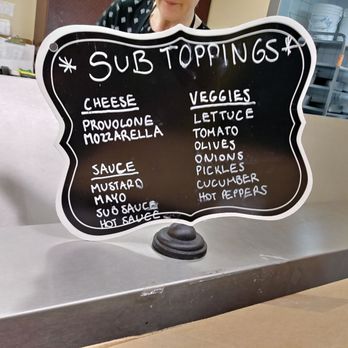 * SUB TOPPINGS *
CHEESE
PROVOLONE
MOZZARELLA
SAUCE
MUSTARD
MAYO
SUB SAUCE
HOT SAUCE
VEGGIES
LETTUCE
TOMATO
OLIVES
ONIONS
PICKLES
CUCUMBER
HOT PEPPERS